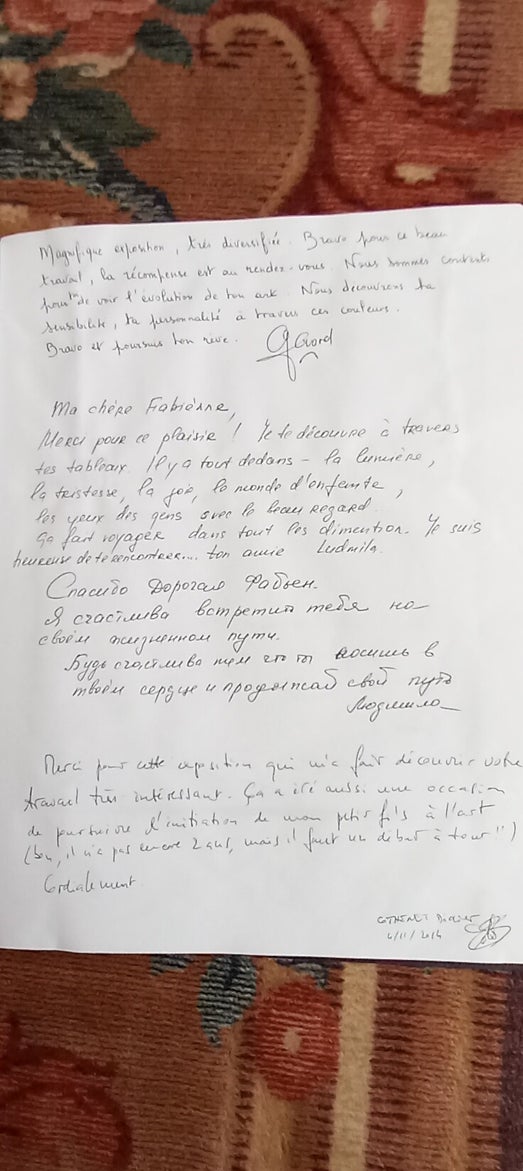 Magnifique exposition, très diversifiée. Bravo pour ce beau
travail, la récompense est au rendez-vous. Nous sommes contents
de voir l'évolution de ton art. Nous découvrons ta
sensibilité, ta personnalité à travers ces couleurs.
Bravo et poursuis ton rêve.
Ma chère Fabiénne,
Merci pour ce plaisir ! Je te découvre à travers
tes tableaux. Il y a tout dedans - la lumière,
la tristesse, la joie, le monde d'enfente,
les yeux des gens avec le beau regard.
ça fait voyager dans tout les dimention. Je suis
heureuse de te rencontrer... ton amie Ludmila.
Спасибо Дорогая Фабьен.
Я счастлива встретить тебя на
своём жизненном пути.
Будь счастлива тем что ты носишь в
твоём сердце и продолжай свой путь
Людмила
Merci pour cette exposition qui m'a fait découvrir votre
travail très intéressant. Ça a été aussi une occasion
de poursuivre l'initiation de mon petit fils à l'art
(bon, il n'a pas encore 2 ans, mais il faut un début à tout !!)
Cordialement.